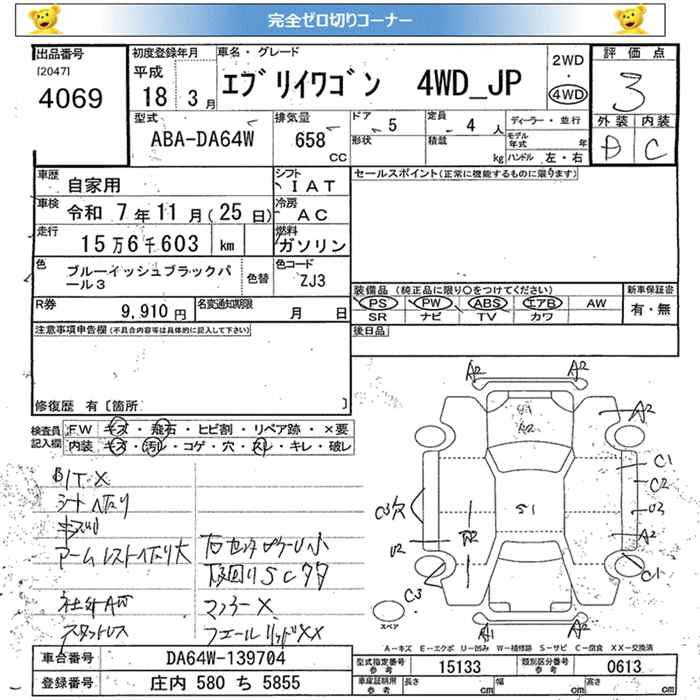 完全ゼロ切りコーナー
出品番号 [2047] 4069
初度登録年月 平成 18 3月
車名・グレード エブリイワゴン 4WD_JP
2WD ・ 4WD
評価点 3
外装 D 内装 C
型式 ABA-DA64W
排気量 658 CC
ドア 5 形状
定員 4 人 積載 kg
ディーラー・並行
モデル年式 年
ハンドル 左・右
車歴 自家用
シフト IAT
車検 令和 7年11月(25日)
冷房 AC
走行 15万6千603 km
燃料 ガソリン
色 ブルーイッシュブラックパール3
色替
色コード ZJ3
R券 9,910円
名変通知期限 月 日
セールスポイント(正常に機能するものに限ります)
装備品(純正品に限り○をつけてください)
PS PW ABS エアB AW
SR ナビ TV カワ
新車保証書 有・無
後日品
注意事項申告欄(不具合内容等は具体的に記入して下さい)
修復歴 有〔箇所 〕
検査員記入欄
FW キズ・飛石・ヒビ割・リペア跡・×要
内装 キズ・汚レ・コゲ・穴・スレ・キレ・破レ
シートヘタリ
アームレストヘタリ大
下回りSCサ
マフラーX
社外AW
スタットレス
フューエルリッドXX
A2 A2
S1
A2
A2
C1
C2
U3
A2
C1
S1
C3欠
U2
C3
A1 A2
スペア
A-キズ E-エクボ U-凹み W-補修跡 S-サビ C-腐食 XX-交換済
車台番号 DA64W-139704
登録番号 庄内 580 ち 5855
型式指定番号 参考 15133
類別区分番号 参考 0613
車庫証明用 参考 長さ cm 幅 cm 高さ cm